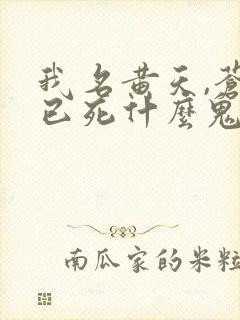 我名黄天,蒼
已死什麼鬼
南瓜家的米粒